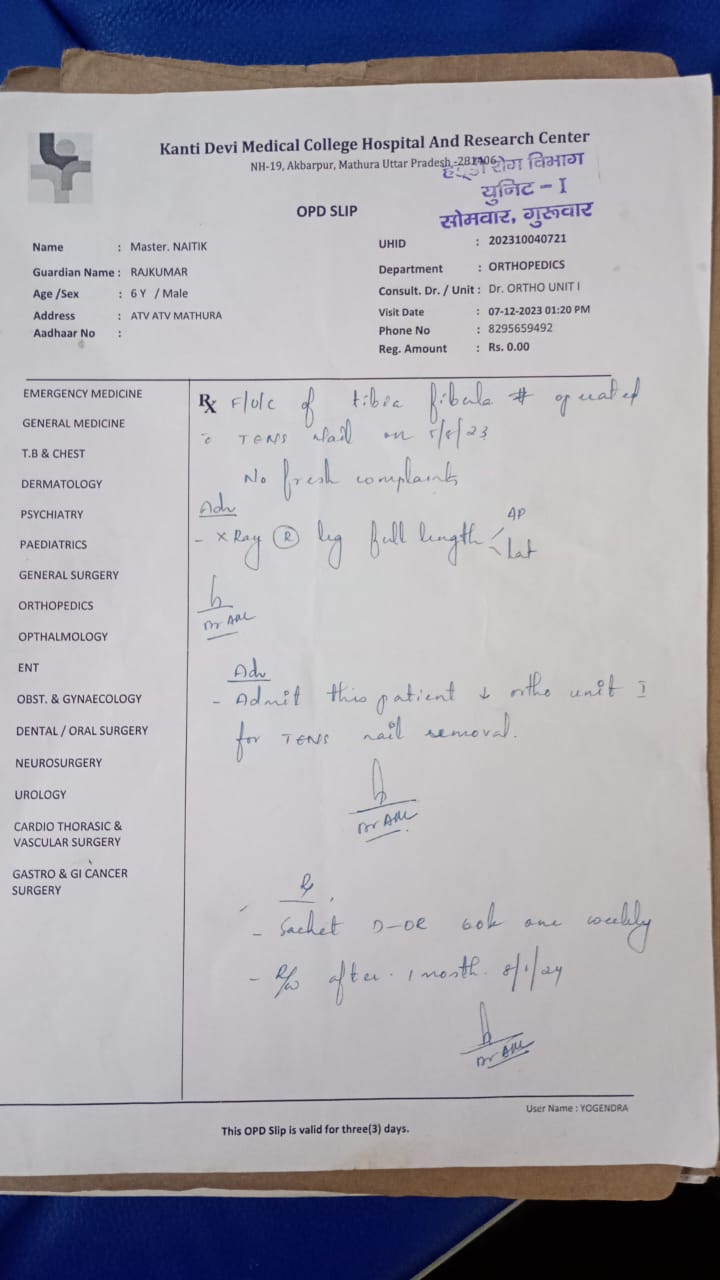 Kanti Devi Medical College Hospital And Research Center
NH-19, Akbarpur, Mathura Uttar Pradesh,-281406
हड्डी रोग विभाग
युनिट - I
सोमवार, गुरूवार
OPD SLIP
Name : Master. NAITIK
Guardian Name : RAJKUMAR
Age /Sex : 6 Y / Male
Address : ATV ATV MATHURA
Aadhaar No :
UHID : 202310040721
Department : ORTHOPEDICS
Consult. Dr. / Unit : Dr. ORTHO UNIT I
Visit Date : 07-12-2023 01:20 PM
Phone No : 8295659492
Reg. Amount : Rs. 0.00
EMERGENCY MEDICINE
GENERAL MEDICINE
T.B & CHEST
DERMATOLOGY
PSYCHIATRY
PAEDIATRICS
GENERAL SURGERY
ORTHOPEDICS
OPTHALMOLOGY
ENT
OBST. & GYNAECOLOGY
DENTAL / ORAL SURGERY
NEUROSURGERY
UROLOGY
CARDIO THORASIC &
VASCULAR SURGERY
GASTRO & GI CANCER
SURGERY
Rx F/U/C of tibia fibula # operated
c TENS Nail on /8/23
No fresh complaints
Adv
- X Ray (R) leg full length < AP
Lat
Adv
- Admit this patient ↓ ortho unit I
for TENS nail removal.
Rx
- Sachet 60k one weekly
- R/w after 1 month. 8/1/24
User Name : YOGENDRA
This OPD Slip is valid for three(3) days.